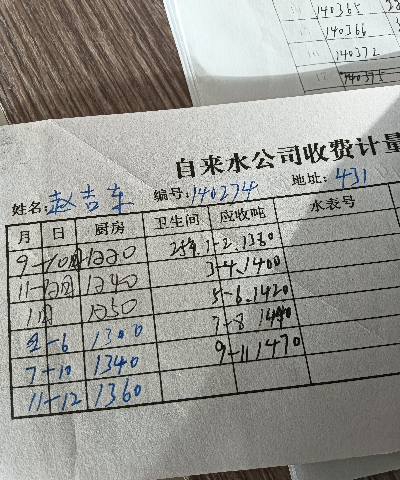 140365
140366
140372
140375
自来水公司收费计量
姓名:赵吉车 编号:140274 地址:431
月 日 厨房 卫生间 应收吨 水表号
9-10月 1220 25年.1-2.1380
11-12月 1240 3-4.1400
1月 1250 5-6.1420
2-6 1300 7-8 1440
7-10 1340 9-11 1470
11-12 1360